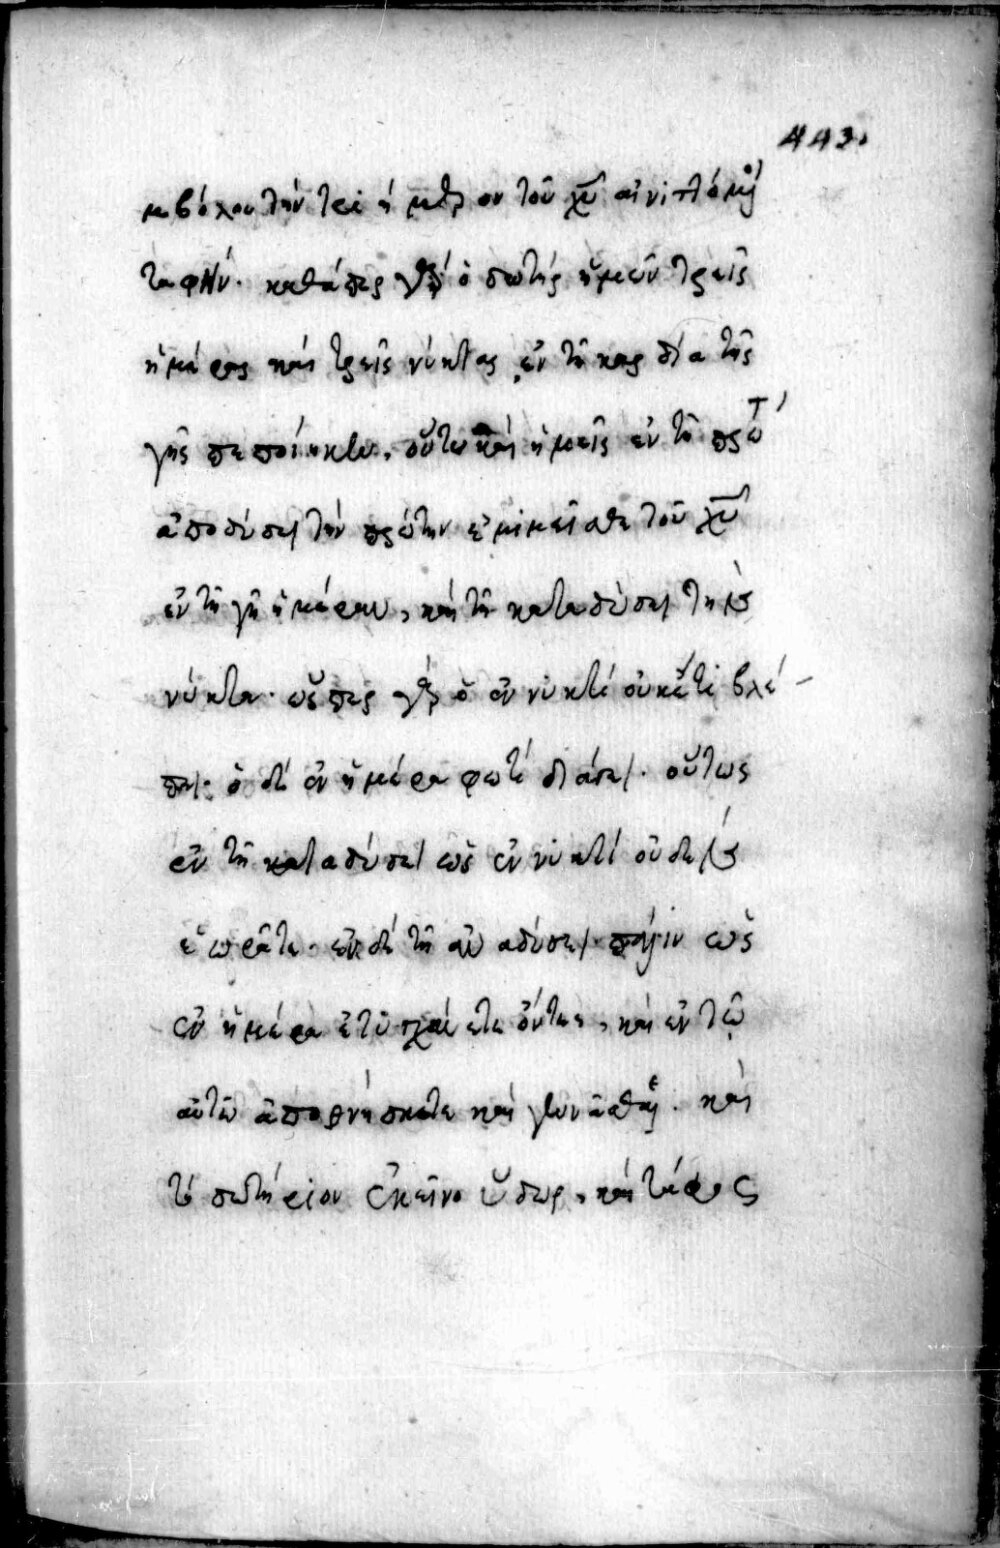 443.
μβόλου τὴν τριήμερον τοῦ χῦ αἰνιττόμενοι
ταφήν. καθάπερ γὰρ ὁ σωτὴρ ἡμῶν τρεῖς
ἡμέρας καὶ τρεῖς νύκτας ἐν τῇ καρδία τῆς
γῆς πεποίηκεν, οὕτω καὶ ἡμεῖς ἐν τῇ πρώτ
ἀναδύσει τὴν πρώτην ἐμιμεῖσθε τοῦ χῦ
ἐν τῇ γῇ ἡμέραν, καὶ τῇ καταδύσει τὴν
νύκτα. ὥσπερ γὰρ ὁ ἐν νυκτὶ οὐκέτι βλέ-
πει. ὁ δὲ ἐν ἡμέρα φωτὶ διάγει. οὕτως
ἐν τῇ καταδύσει ὡς ἐν νυκτὶ οὐδὲν
ἑωρᾶτε. ἐν δὲ τῇ ἀναδύσει πάλιν ὡς
ἐν ἡμέρα ἐτυγχάνετε ὄντες, καὶ ἐν τῷ
αὐτῷ ἀπεθνήσκετε καὶ γεννᾶσθε. καὶ
τὸ σωτήριον ἐκεῖνο ὕδωρ, καὶ τάφος